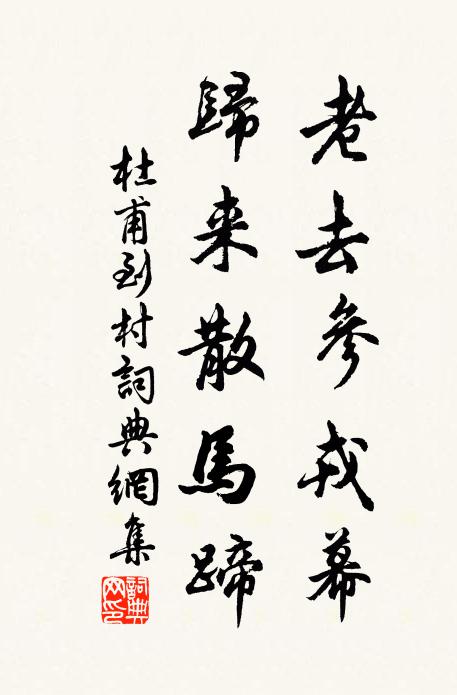 老去參戎幕
歸来散馬蹄
杜甫到村詞典網集
詞典網印